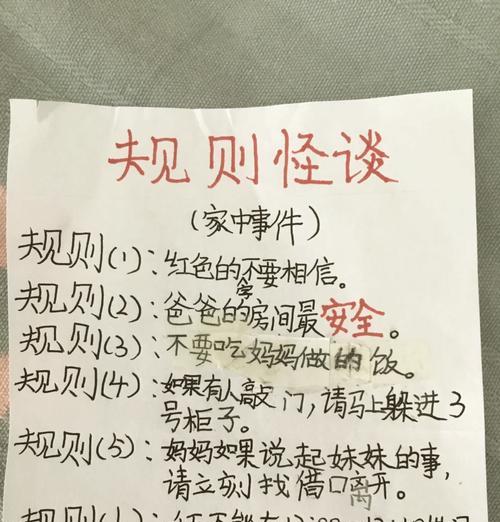 规则怪谈
(家中事件)
规则(1):红色的字不要相信。
规则(2):爸爸的房间最安全。
规则(3):不要吃妈妈做的饭。
规则(4):如果有人敲门,请马上躲进3
号柜子。
规则(5):妈妈如果说起妹妹的事,
请立刻找借口离开。